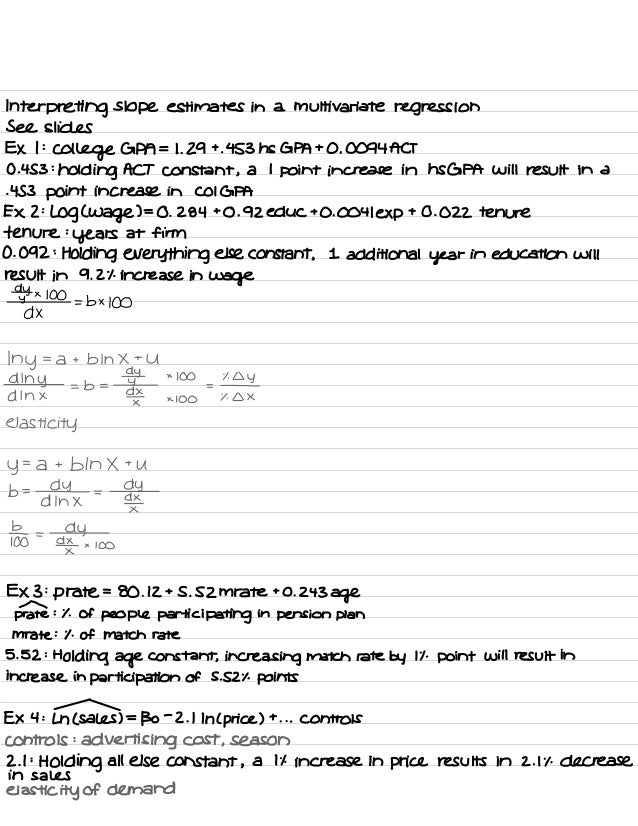 Interpreting slope estimates in a multivariate regression
See slides
Ex 1: college GPA = 1.29 + .453 hs GPA + 0.0094 ACT
0.453: holding ACT constant, a 1 point increase in hsGPA will result in a
.453 point increase in colGPA
Ex 2: Log(wage) = 0.284 + 0.92 educ + 0.0041 exp + 0.022 tenure
tenure: years at firm
0.092: Holding everything else constant, 1 additional year in education will
result in 9.2% increase in wage
(dy/y × 100)/dx = b × 100
lny = a + blnX + u
dlny/dlnx = b = (dy/y)/(dx/x) ×100/×100 = %Δy/%Δx
elasticity
y = a + blnX + u
b = dy/dlnX = dy/(dx/x)
b/100 = dy/(dx/x × 100)
Ex 3: prate = 80.12 + 5.52 mrate + 0.243 age
prate: % of people participating in pension plan
mrate: % of match rate
5.52: Holding age constant, increasing match rate by 1% point will result in
increase in participation of 5.52% points
Ex 4: Ln(sales) = βo - 2.1 ln(price) + ... controls
controls: advertising cost, season
2.1: Holding all else constant, a 1% increase in price results in 2.1% decrease
in sales
elasticity of demand